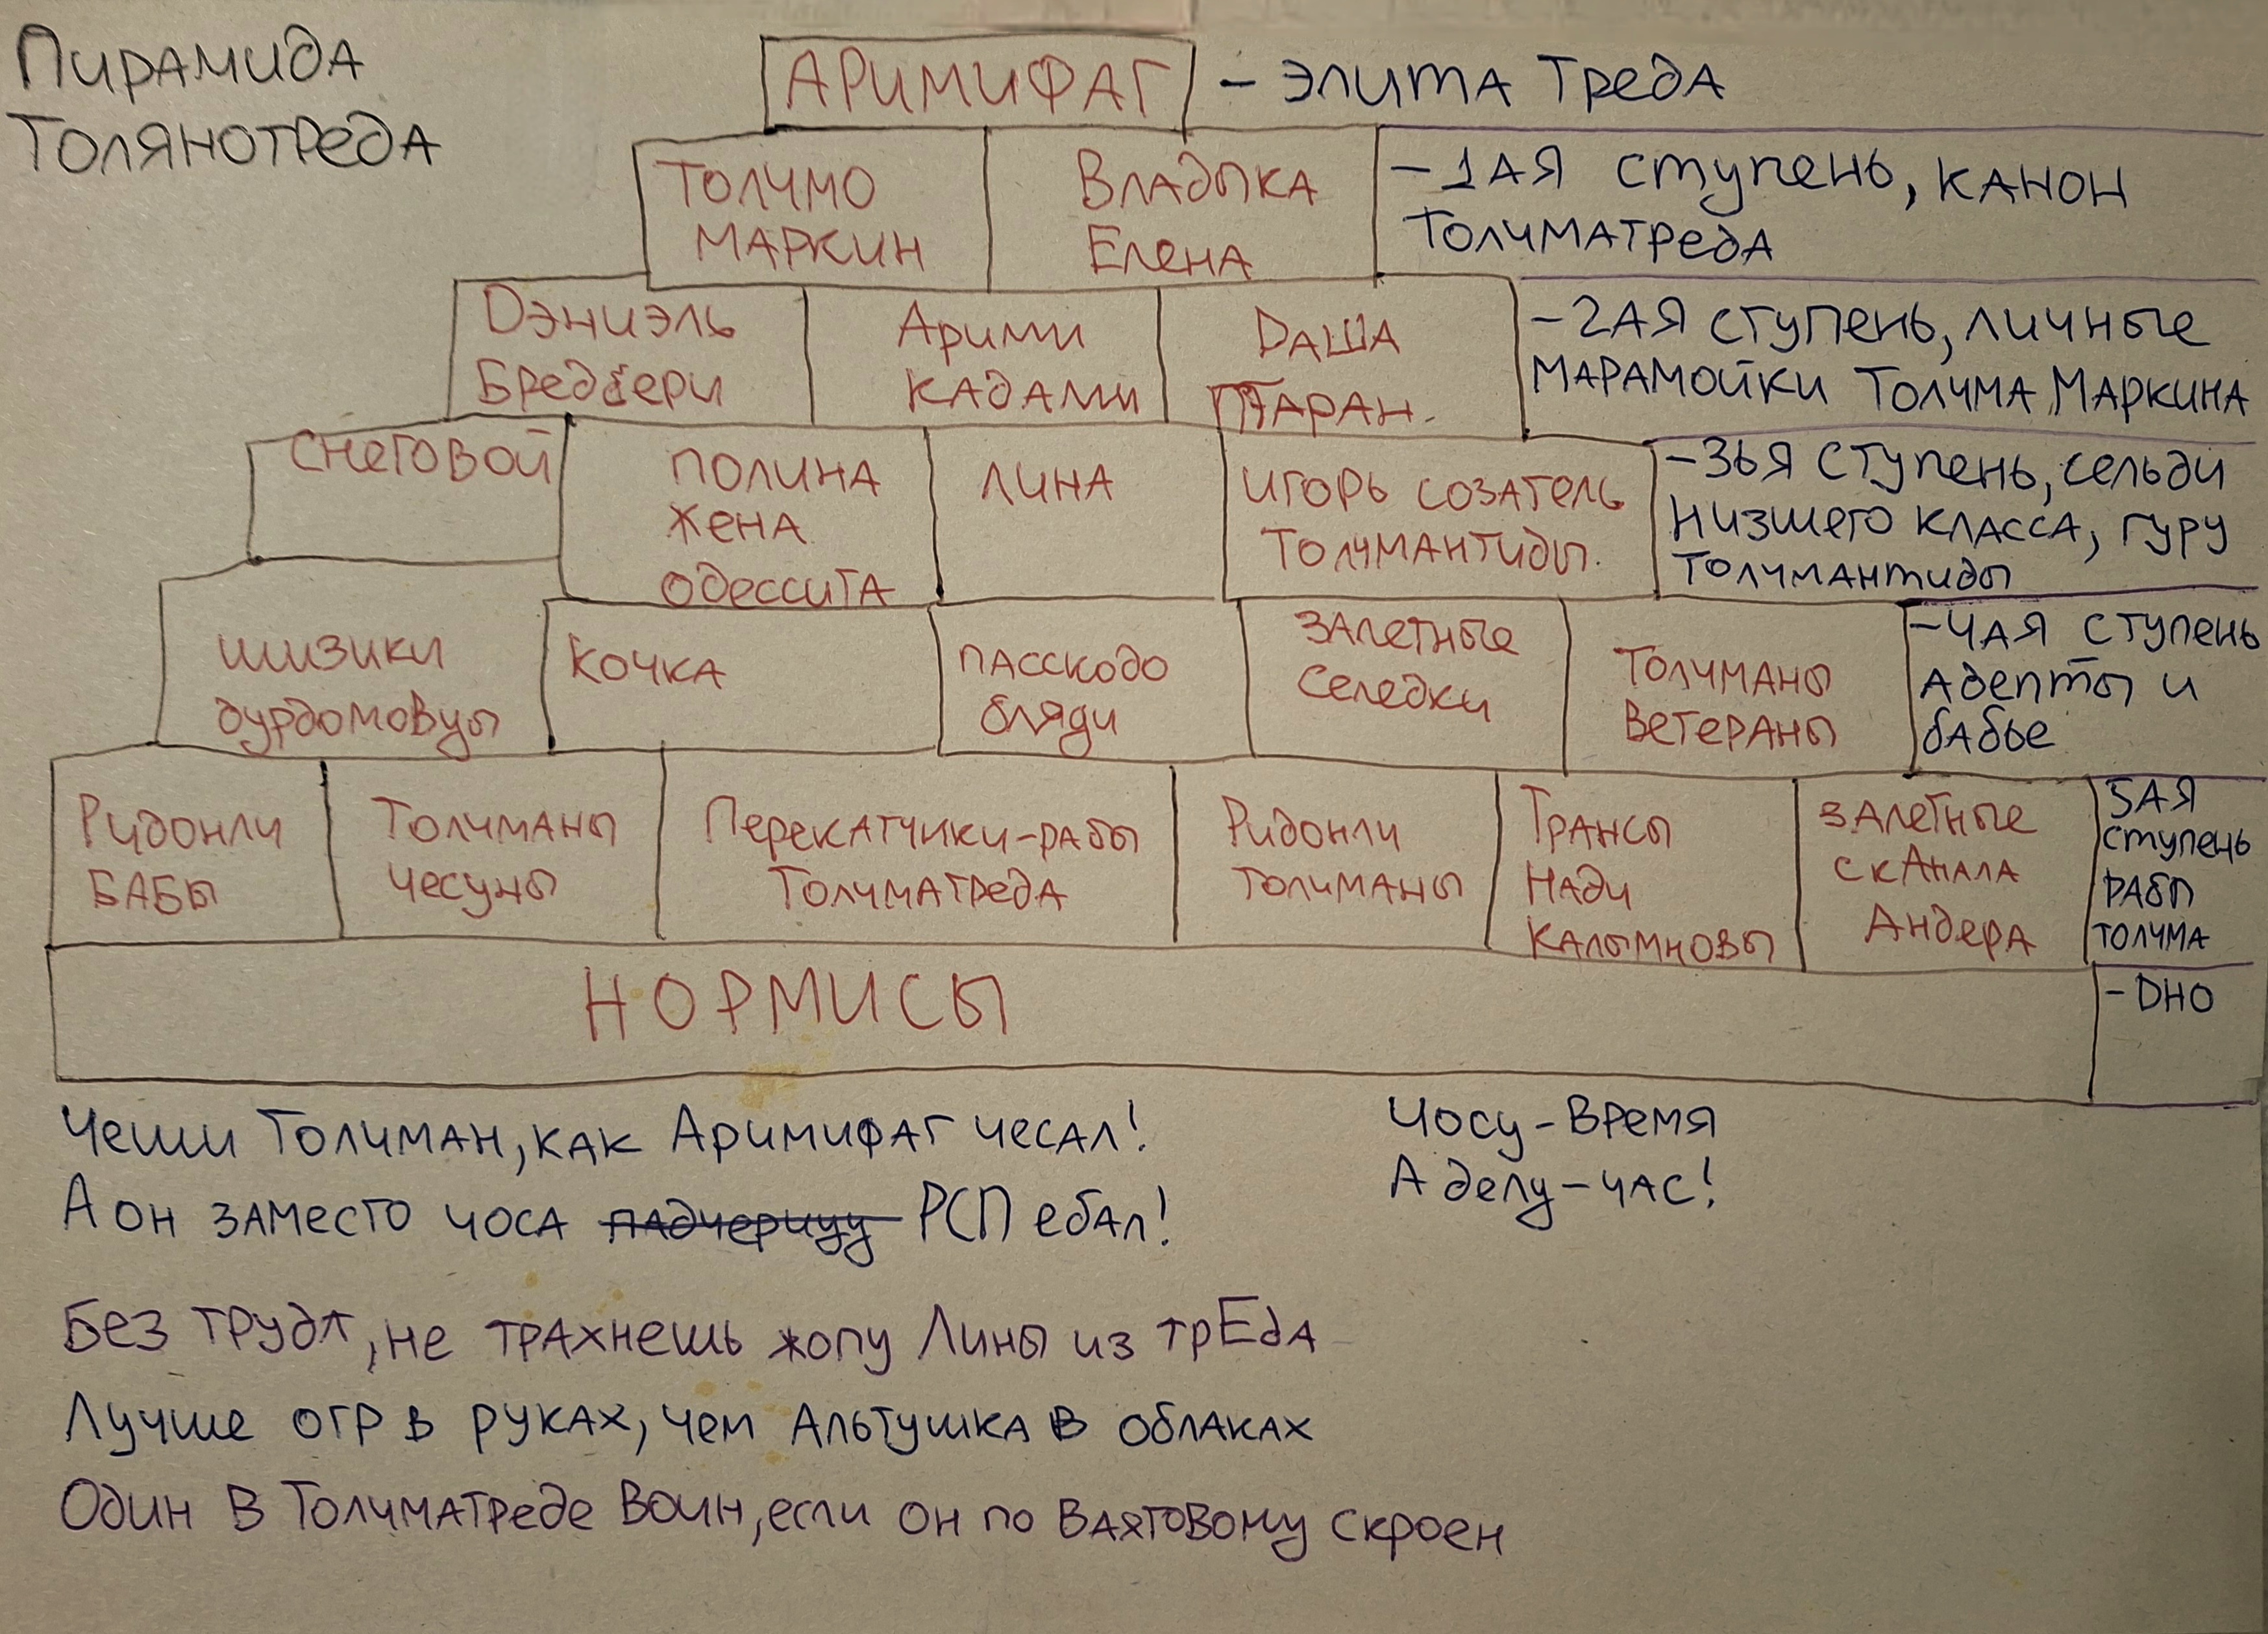 Пирамида
Толянотреда
АРИМИФАГ - элита треда
Толчмо
Маркин
Владыка
Елена
-1ая ступень, канон
Толчматреда
Dэниэль
Бредбери
Арими
кадами
Dаша
Таран.
-2ая ступень, личные
марамойки Толчма Маркина
снеговой
полина
жена
одессита
лина
игорь созатель
Толчмантиды.
-3ья ступень, сельди
низшего класса, гуру
Толчмантиды
шизики
дурдомовцы
кочка
пасскодо
бляди
залетные
селедки
Толчманы
Ветераны
-4ая ступень
адепты и
бабье
Ридонли
Бабы
Толчманы
чесуны
Перекатчики-рабы
Толчматреда
Ридонли
толчманы
Трансы
Нади
Калымновы
залетные
скАнала
Андера
5ая
ступень
рабы
толчма
НОРМИСЫ
-DНО
Чеши Толчман, как Аримифаг чесал!
А он заместо чоса падчерицу РСП ебал!
Чосу-время
А делу-час!
Без труда, не трахнешь жопу Лины из трЕда
Лучше огр в руках, чем Альтушка в облаках
Один в Толчматреде Воин, если он по Вахтовому скроен